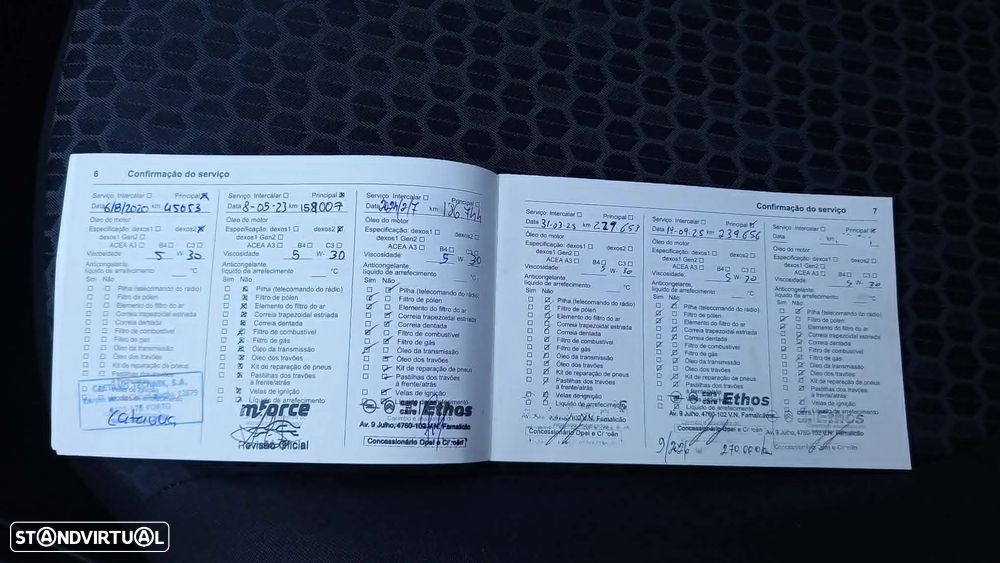 6 Confirmação do serviço
Serviço: Intercalar Principal
Data 6/8/2020 km 45053
Óleo do motor
Especificação: dexos1 dexos2
dexos1 Gen2
ACEA A3 B4 C3
Viscosidade: 5 W- 30
Anticongelante,
líquido de arrefecimento °C
Sim Não
Pilha (telecomando do rádio)
Filtro de pólen
Elemento do filtro do ar
Correia trapezoidal estriada
Correia dentada
Filtro de combustível
Filtro de gás
Óleo da transmissão
Óleo dos travões
Kit de reparação de pneus
Serviço: Intercalar Principal
Data 8-05-23 km 158007
Óleo do motor
Especificação: dexos1 dexos2
dexos1 Gen2
ACEA A3 B4 C3
Viscosidade: 5 W- 30
Anticongelante,
líquido de arrefecimento °C
Sim Não
Pilha (telecomando do rádio)
Filtro de pólen
Elemento do filtro do ar
Correia trapezoidal estriada
Correia dentada
Filtro de combustível
Filtro de gás
Óleo da transmissão
Óleo dos travões
Kit de reparação de pneus
Pastilhas dos travões
à frente/atrás
Velas de ignição
Líquido de arrefecimento
mforce
Revisão Oficial
Serviço: Intercalar Principal
Data 2024/2/7 km 186.744
Óleo do motor
Especificação: dexos1 dexos2
dexos1 Gen2
ACEA A3 B4 C3
Viscosidade: 5 W- 30
Anticongelante,
líquido de arrefecimento °C
Sim Não
Pilha (telecomando do rádio)
Filtro de pólen
Elemento do filtro do ar
Correia trapezoidal estriada
Correia dentada
Filtro de combustível
Filtro de gás
Óleo da transmissão
Óleo dos travões
Kit de reparação de pneus
Pastilhas dos travões
à frente/atrás
Velas de ignição
Ethos
Av. 9 Julho, 4760-102 V.N. Famalicão
Concessionário Opel e Citroën
Confirmação do serviço 7
Serviço: Intercalar Principal
Data 31-03-25 km 229.653
Óleo do motor
Especificação: dexos1 dexos2
dexos1 Gen2
ACEA A3 B4 C3
Viscosidade: 5 W- 30
Anticongelante,
líquido de arrefecimento °C
Sim Não
Pilha (telecomando do rádio)
Filtro de pólen
Elemento do filtro do ar
Correia trapezoidal estriada
Correia dentada
Filtro de combustível
Filtro de gás
Óleo da transmissão
Óleo dos travões
Kit de reparação de pneus
Pastilhas dos travões
à frente/atrás
Velas de ignição
Líquido de arrefecimento
Serviço: Intercalar Principal
Data 14-09-25 km 239.656
Óleo do motor
Especificação: dexos1 dexos2
dexos1 Gen2
ACEA A3 B4 C3
Viscosidade: 5 W- 30
Anticongelante,
líquido de arrefecimento °C
Sim Não
Pilha (telecomando do rádio)
Filtro de pólen
Elemento do filtro do ar
Correia trapezoidal estriada
Correia dentada
Filtro de combustível
Filtro de gás
Óleo da transmissão
Óleo dos travões
Kit de reparação de pneus
Pastilhas dos travões
à frente/atrás
Velas de ignição
Líquido de arrefecimento
Ethos
Av. 9 Julho, 4760-102 V.N. Famalicão
Concessionário Opel e Citroën
Serviço: Intercalar Principal
Data km
Óleo do motor
Especificação: dexos1 dexos2
dexos1 Gen2
ACEA A3 B4 C3
Viscosidade: 5 W- 30
Anticongelante,
líquido de arrefecimento °C
Sim Não
Pilha (telecomando do rádio)
Filtro de pólen
Elemento do filtro do ar
Correia trapezoidal estriada
Correia dentada
Filtro de combustível
Filtro de gás
Óleo da transmissão
Óleo dos travões
Kit de reparação de pneus
Pastilhas dos travões
à frente/atrás
Velas de ignição
Líquido de arrefecimento
Av. 9 Julho, 4760-102 V.N. Famalicão
STANDVIRTUAL